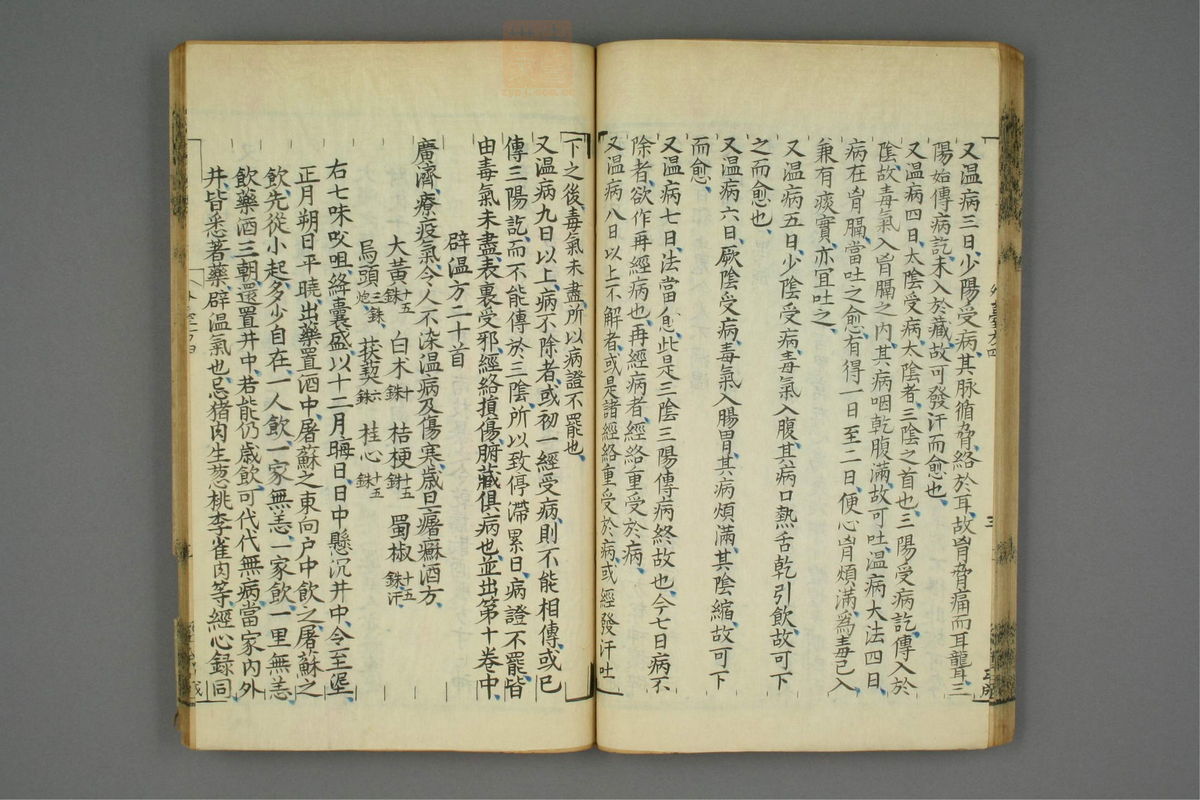 又温病三日少陽受病其脉循脅絡於耳故胷脅痛而耳聾三
陽始傳病訖未入於藏故可發汗而愈也
又温病四日太陰受病太陰者三陰之首也三陽受病訖傳入於
陰故毒氣入胷膈之内其病咽乾腹滿故可吐温病大法四日
病在胷膈當吐之愈有得一日至二日便心胷煩滿爲毒已入
兼有痰實亦冝吐之
又温病五日少陰受病毒氣入腹其病口熱舌乾引飲故可下
之而愈也
又温病六日厥陰受病毒氣入腸胃其病煩滿其陰縮故可下
而愈
又温病七日法當愈此是三陰三陽傳病終故也今七日病不
除者欲作再經病也再經病者經絡重受於病
又温病八日以上不解者或是諸經絡重受於病或經發汗吐
下之後毒氣未盡所以病證不罷也
又温病九日以上病不除者或初一經受病則不能相傳或已
傳三陽訖而不能傳於三陰所以致停滯累日病證不罷皆
由毒氣未盡表裏受邪經絡損傷腑藏俱病也並出第十卷中
辟温方二十首
廣濟療疫氣令人不染温病及傷寒歲旦屠蘇酒方
大黄十五銖 白术十銖 桔梗十五銖 蜀椒十五銖汗
烏頭三銖炮 菝葜六銖 桂心十五銖
右七味㕮咀絳囊盛以十二月晦日日中懸沉井中令至埿
正月朔旦平曉出藥置酒中屠蘇之東向户中飲之屠蘇之
飲先從小起多少自在一人飲一家無恙一家飲一里無恙
飲藥酒三朝還置井中若能仍歲飲可代代無病當家内外
井皆悉著藥辟温氣也忌猪肉生葱桃李雀肉等經心録同